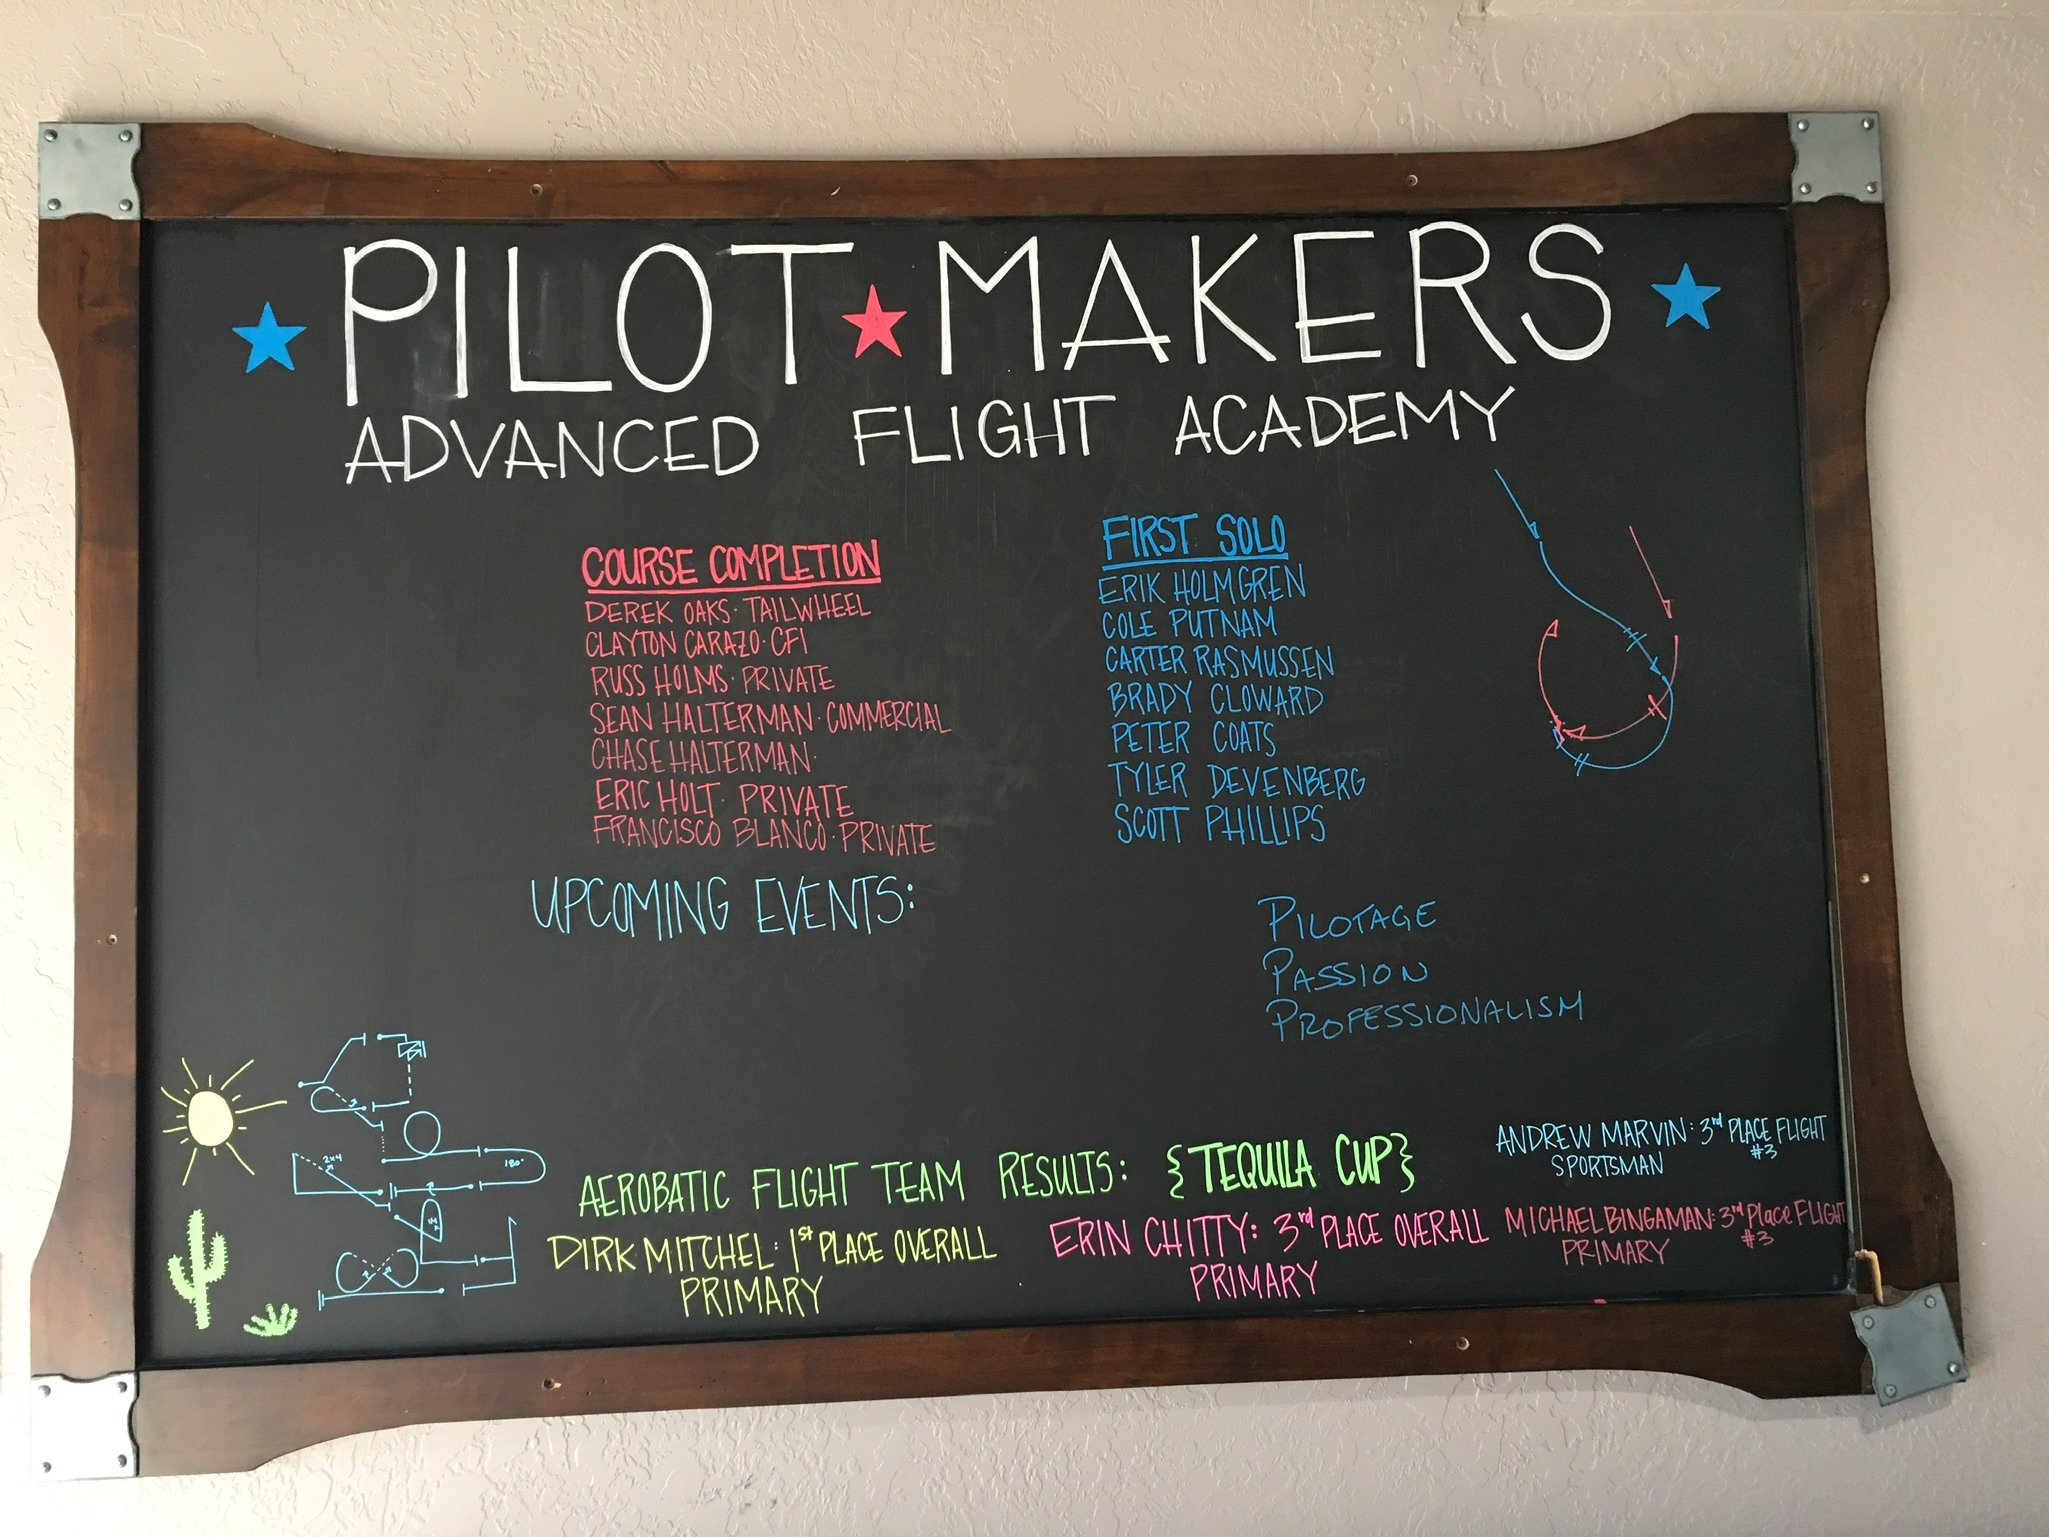 PILOT ★ MAKERS
ADVANCED FLIGHT ACADEMY
COURSE COMPLETION
DEREK OAKS · TAILWHEEL
CLAYTON CARAZO · CFI
RUSS HOLMS · PRIVATE
SEAN HALTERMAN · COMMERCIAL
CHASE HALTERMAN ·
ERIC HOLT · PRIVATE
FRANCISCO BLANCO · PRIVATE
FIRST SOLO
ERIK HOLMGREN
COLE PUTNAM
CARTER RASMUSSEN
BRADY CLOWARD
PETER COATS
TYLER DEVENBERG
SCOTT PHILLIPS
UPCOMING EVENTS:
PILOTAGE
PASSION
PROFESSIONALISM
2x4
180°
AEROBATIC FLIGHT TEAM RESULTS: {TEQUILA CUP}
DIRK MITCHEL: 1st PLACE OVERALL
PRIMARY
ERIN CHITTY: 3rd PLACE OVERALL
PRIMARY
ANDREW MARVIN: 3rd PLACE FLIGHT
SPORTSMAN #3
MICHAEL BINGAMAN: 3rd PLACE FLIGHT
PRIMARY #3